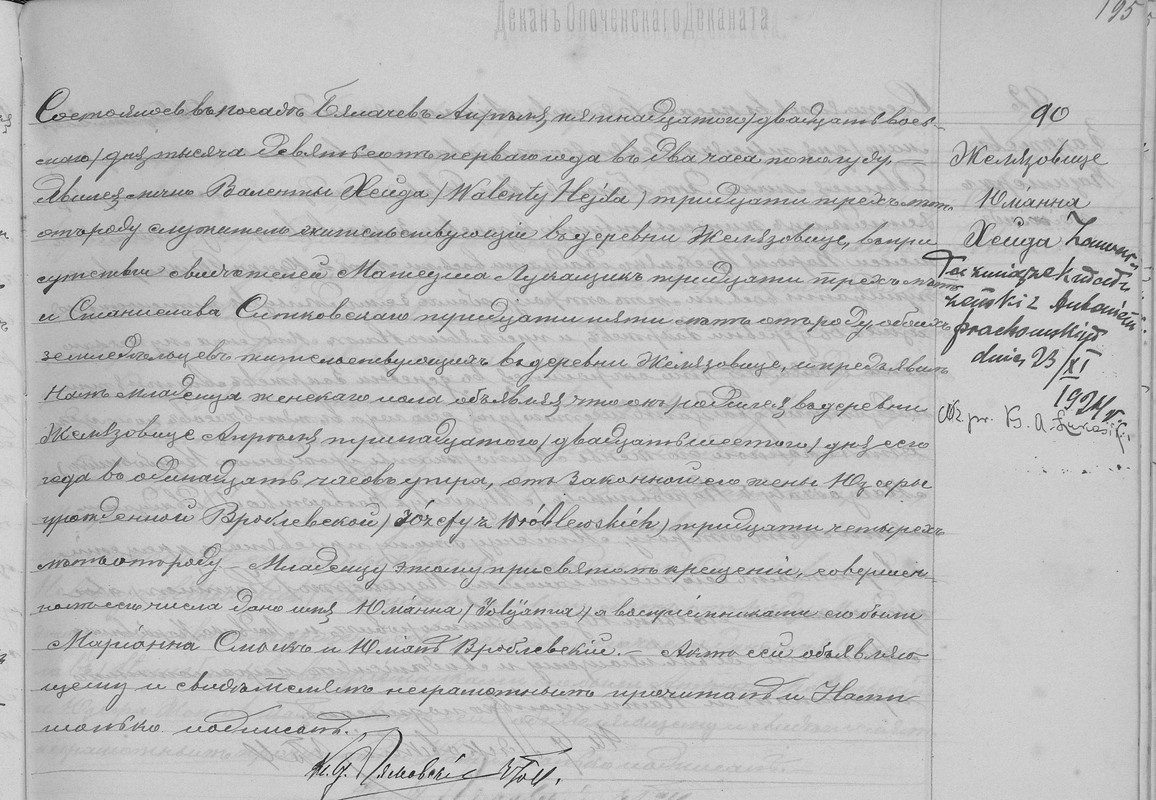 Деканъ Опоченскаго Деканата
195
Состоялось въ посадѣ Бялачевъ Апрѣля пятнадцатого /двадцать вось-
маго/ дня тысяча девятьсотъ перваго года въ два часа пополудню
Явился лично Валенты Хейда /Walenty Hejda/ тридцати трехъ лѣтъ
отъ роду служитель жительствующій въ деревни Желязовице, въ при
сутствіи свидѣтелей Матеуша тридцати трехъ лѣтъ
и Станислава Ситковскаго тридцати пяти лѣтъ отъ роду обоихъ
земледѣльцевъ жительствующихъ въ деревни Желязовице, и предъявилъ
Намъ младенца женскаго пола объявляя что онъ родился въ деревни
Желязовице Апрѣля тринадцатого /двадцать шестого/ дня сего
года въ одинадцать часовъ утра, отъ законной его жены Юзефы
урожденной Вроблевской /Józefy z Wróblewskich/ тридцати четырехъ
лѣтъ отъ роду – Младенцу этому при святомъ крещеніи, совершен-
номъ сего числа дано имя Юліянна /Julijanna/ а воспріемниками его были
Маріянна Смолкъ и Юліянъ Вроблевскій. – Актъ сей объявляю-
щему и свидѣтелямъ неграмотнымъ прочитанъ и Нами
только подписанъ.
90
Желязовице
Юліянна
Хейда Zawar-
ła związek małż
żeński z Antonim
Prochowskim
dnia 23/XI
1924 r.